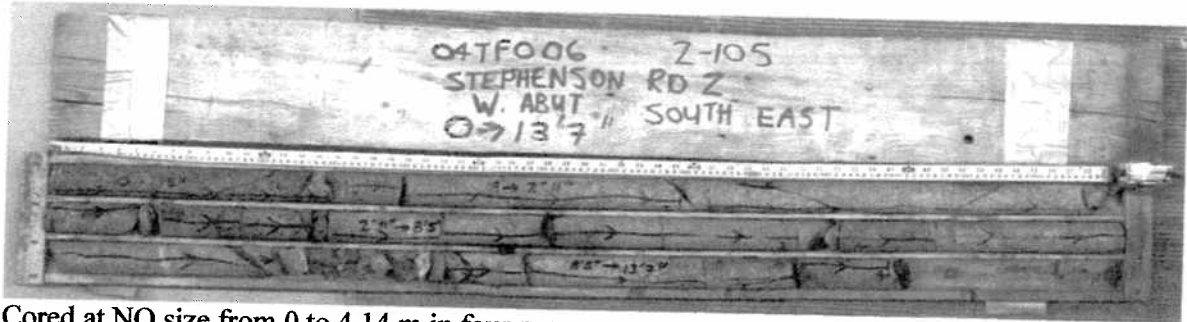 04TF006 2-105
STEPHENSON RD 2
W. ABUT SOUTH EAST
0→13'7"
2'11"→8'5"
8'5"→13'7"
Cored at NQ size from 0 to 4.14 m in four